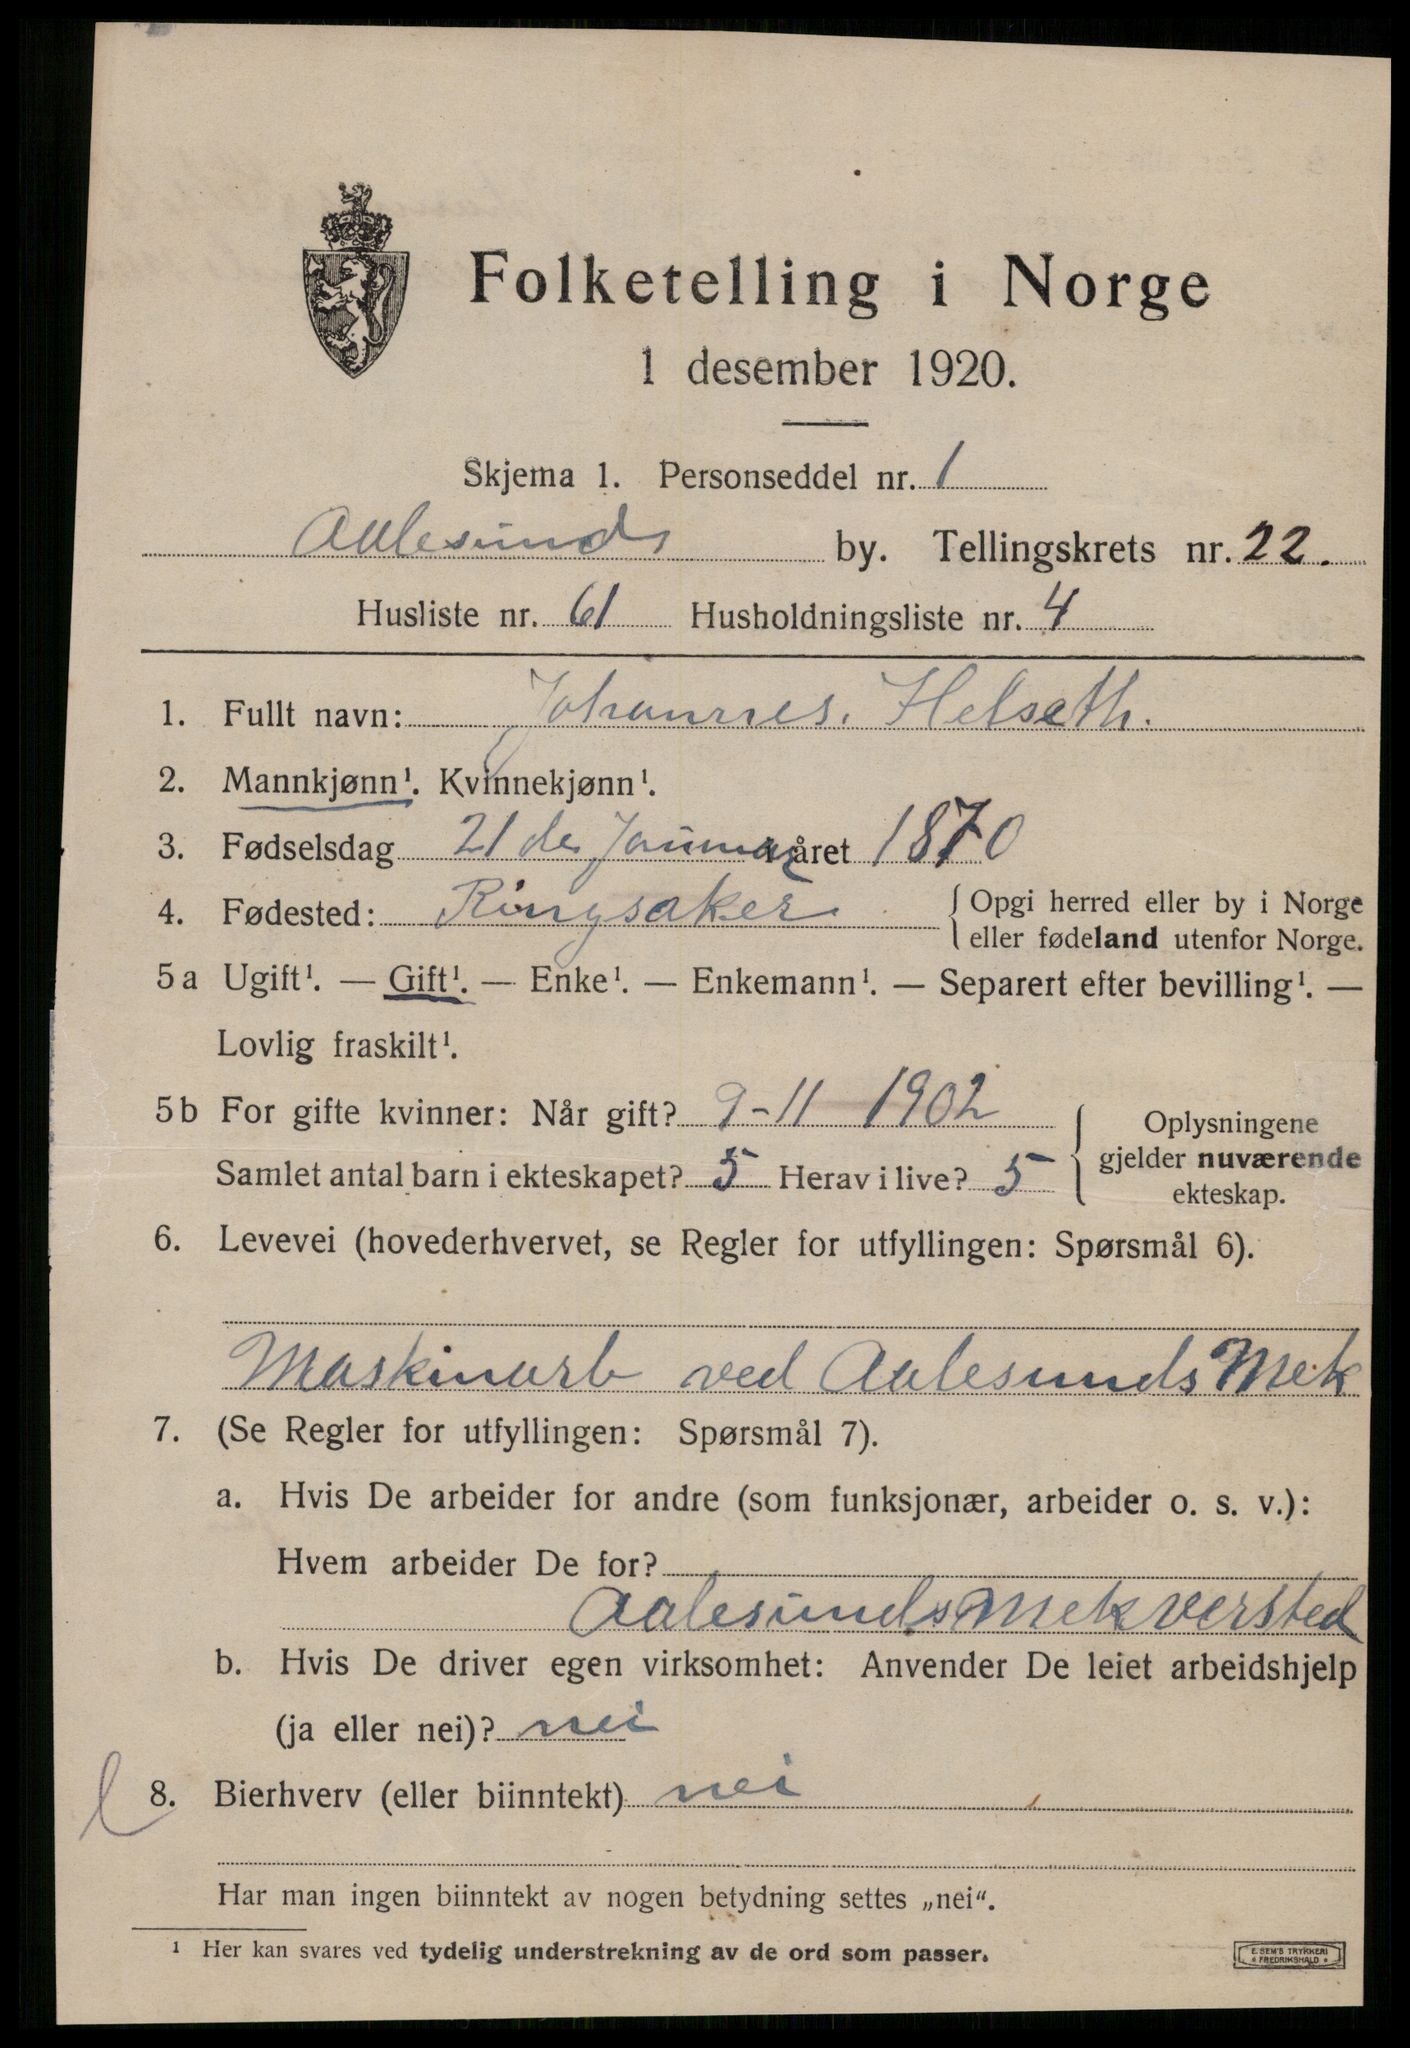 Folketelling i Norge
1 desember 1920.
Skjema 1. Personseddel nr. 1
Aalesunds by. Tellingskrets nr. 22.
Husliste nr. 61 Husholdningsliste nr. 4
1. Fullt navn: Johannes. Helseth.
2. Mannkjønn¹. Kvinnekjønn¹.
3. Fødselsdag 21 de Januar året 1870
4. Fødested: Ringsaker { Opgi herred eller by i Norge
eller fødeland utenfor Norge.
5a Ugift¹. — Gift¹. — Enke¹. — Enkemann¹. — Separert efter bevilling¹. —
Lovlig fraskilt¹.
5b For gifte kvinner: Når gift? 9-11 1902
Samlet antal barn i ekteskapet? 5 Herav i live? 5
Oplysningene
gjelder nuværende
ekteskap.
6. Levevei (hovederhvervet, se Regler for utfyllingen: Spørsmål 6).
Maskinarb ved Aalesunds Mek
7. (Se Regler for utfyllingen: Spørsmål 7).
a. Hvis De arbeider for andre (som funksjonær, arbeider o. s. v.):
Hvem arbeider De for?
Aalesunds Mek Versted
b. Hvis De driver egen virksomhet: Anvender De leiet arbeidshjelp
(ja eller nei)? nei
8. Bierhverv (eller biinntekt) nei
Har man ingen biinntekt av nogen betydning settes „nei“.
¹ Her kan svares ved tydelig understrekning av de ord som passer.
E. SEM'S TRYKKERI
* FREDRIKSHALD *